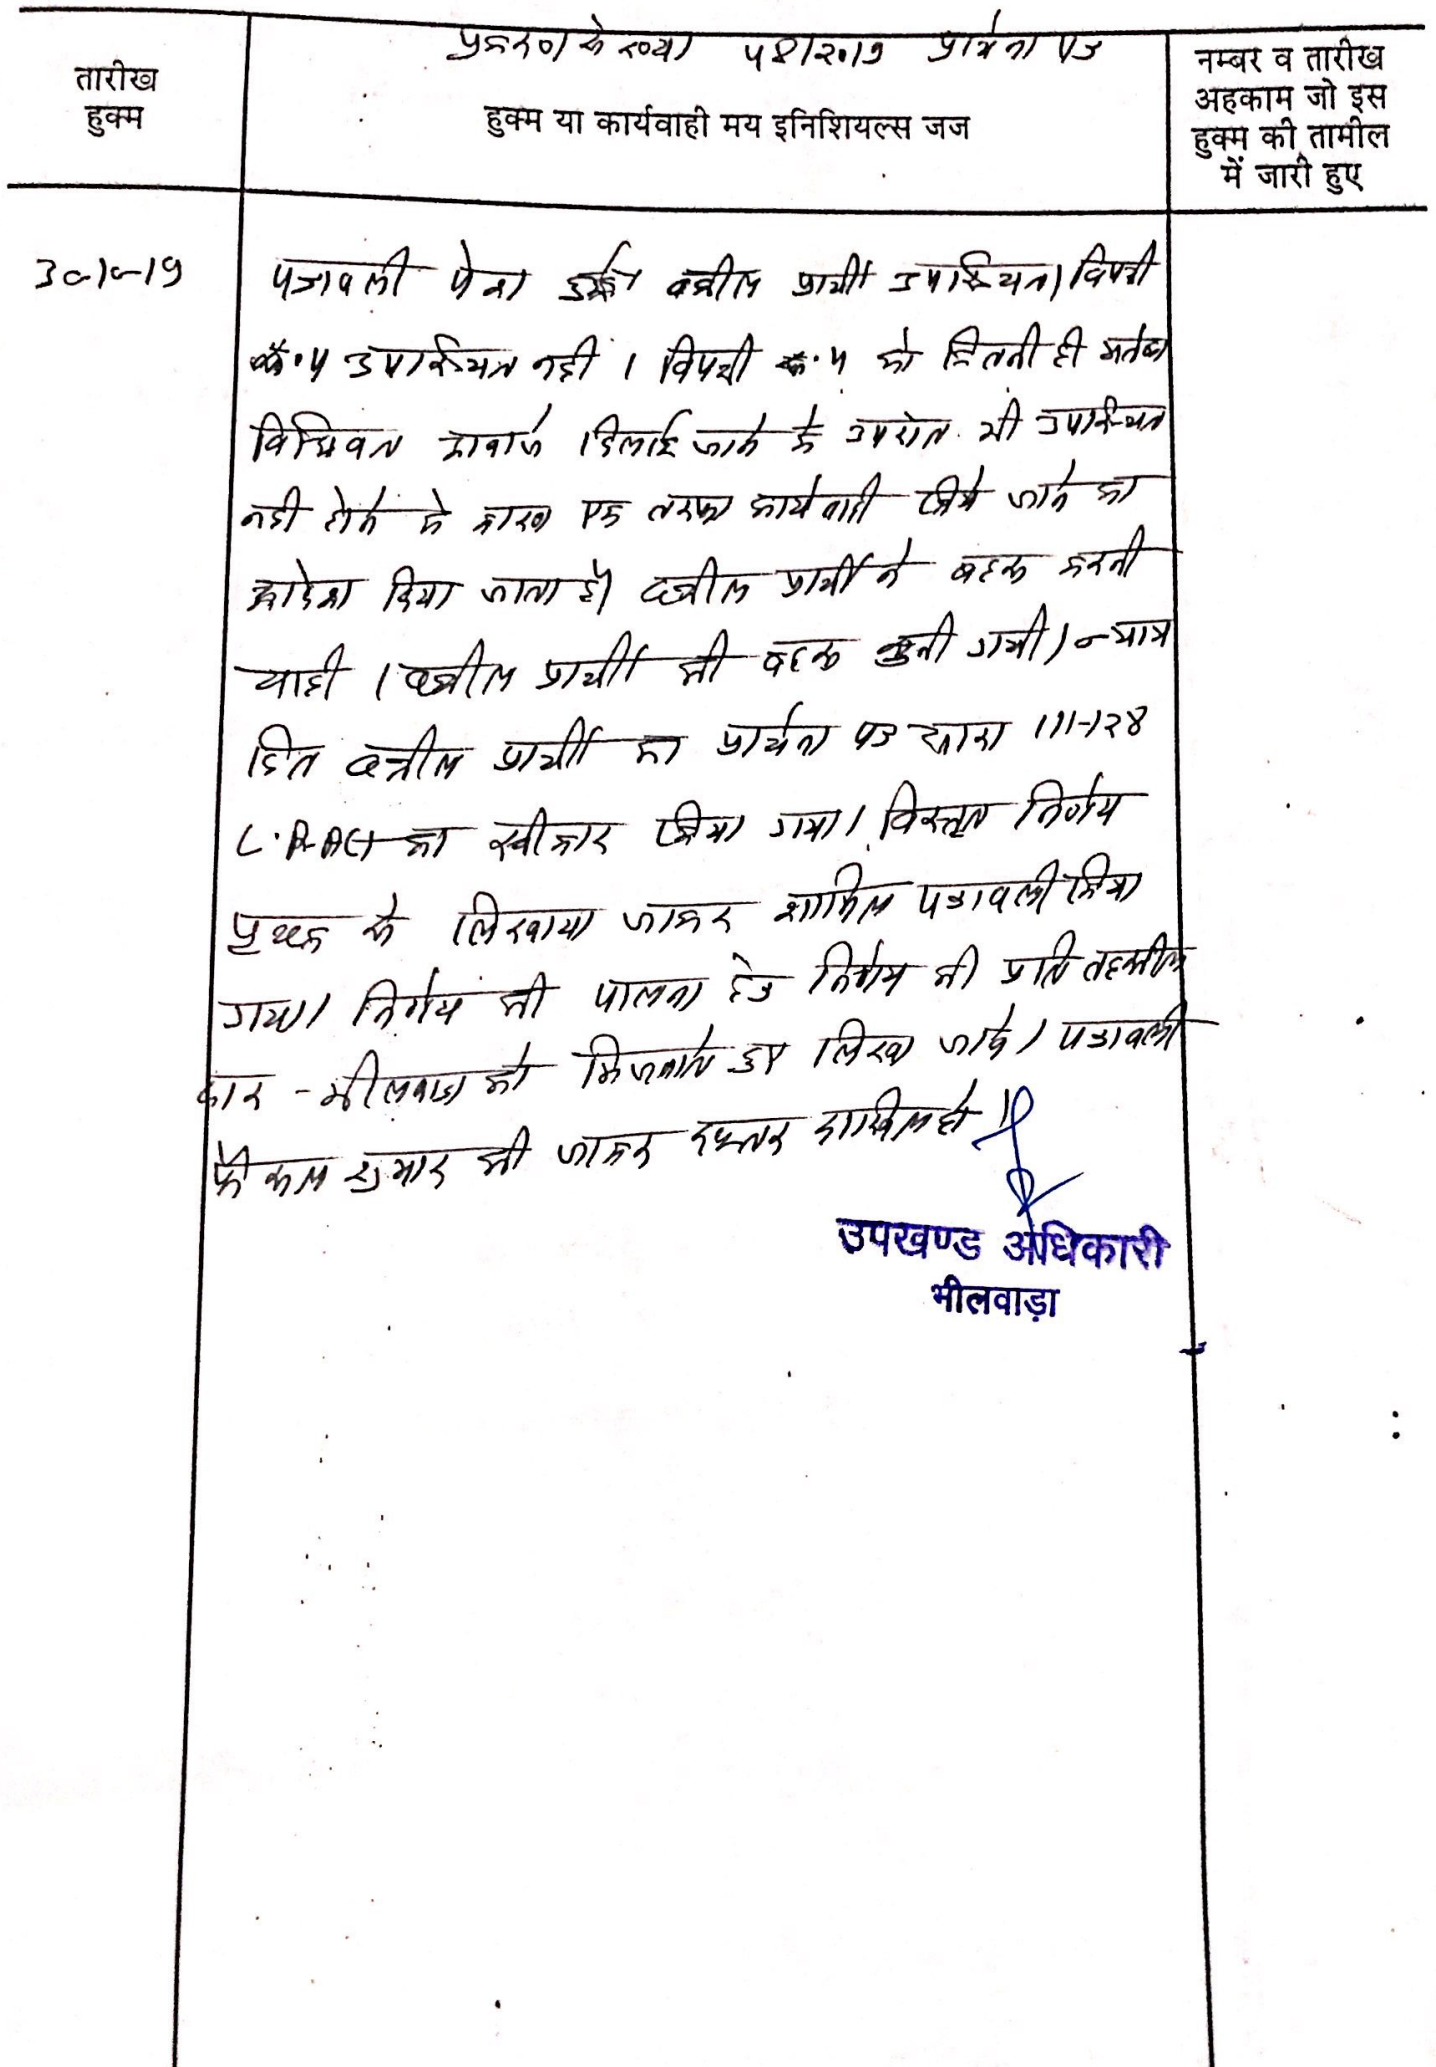 प्रकरण संख्या 58/2019 प्रार्थना पत्र
तारीख
हुक्म
हुक्म या कार्यवाही मय इनिशियल्स जज
नम्बर व तारीख
अहकाम जो इस
हुक्म की तामील
में जारी हुए
पत्रावली पेश हुई। वकील प्रार्थी उपस्थित। विपक्षी
उपस्थित नहीं। विपक्षी को कितनी ही मर्तबा
विधिवत आवाजे दिलाई जाने के उपरांत भी उपस्थित
नहीं होने के कारण एक तरफा कार्यवाही किये जाने का
आदेश दिया जाता है। वकील प्रार्थी ने बहस करनी
चाही। वकील प्रार्थी की बहस सुनी गयी। न्याय
हित वकील प्रार्थी का प्रार्थना पत्र धारा 111-128
L.R. Act का स्वीकार किया गया। विस्तृत निर्णय
पृथक से लिखाया जाकर शामिल पत्रावली किया
गया। निर्णय की पालना हेतु निर्णय की प्रति तहसील
दार - भीलवाडा को भिजवाते हुए लिखा जावे। पत्रावली
फैसल शुमार की जाकर दफ्तर दाखिल हो।
उपखण्ड अधिकारी
भीलवाड़ा